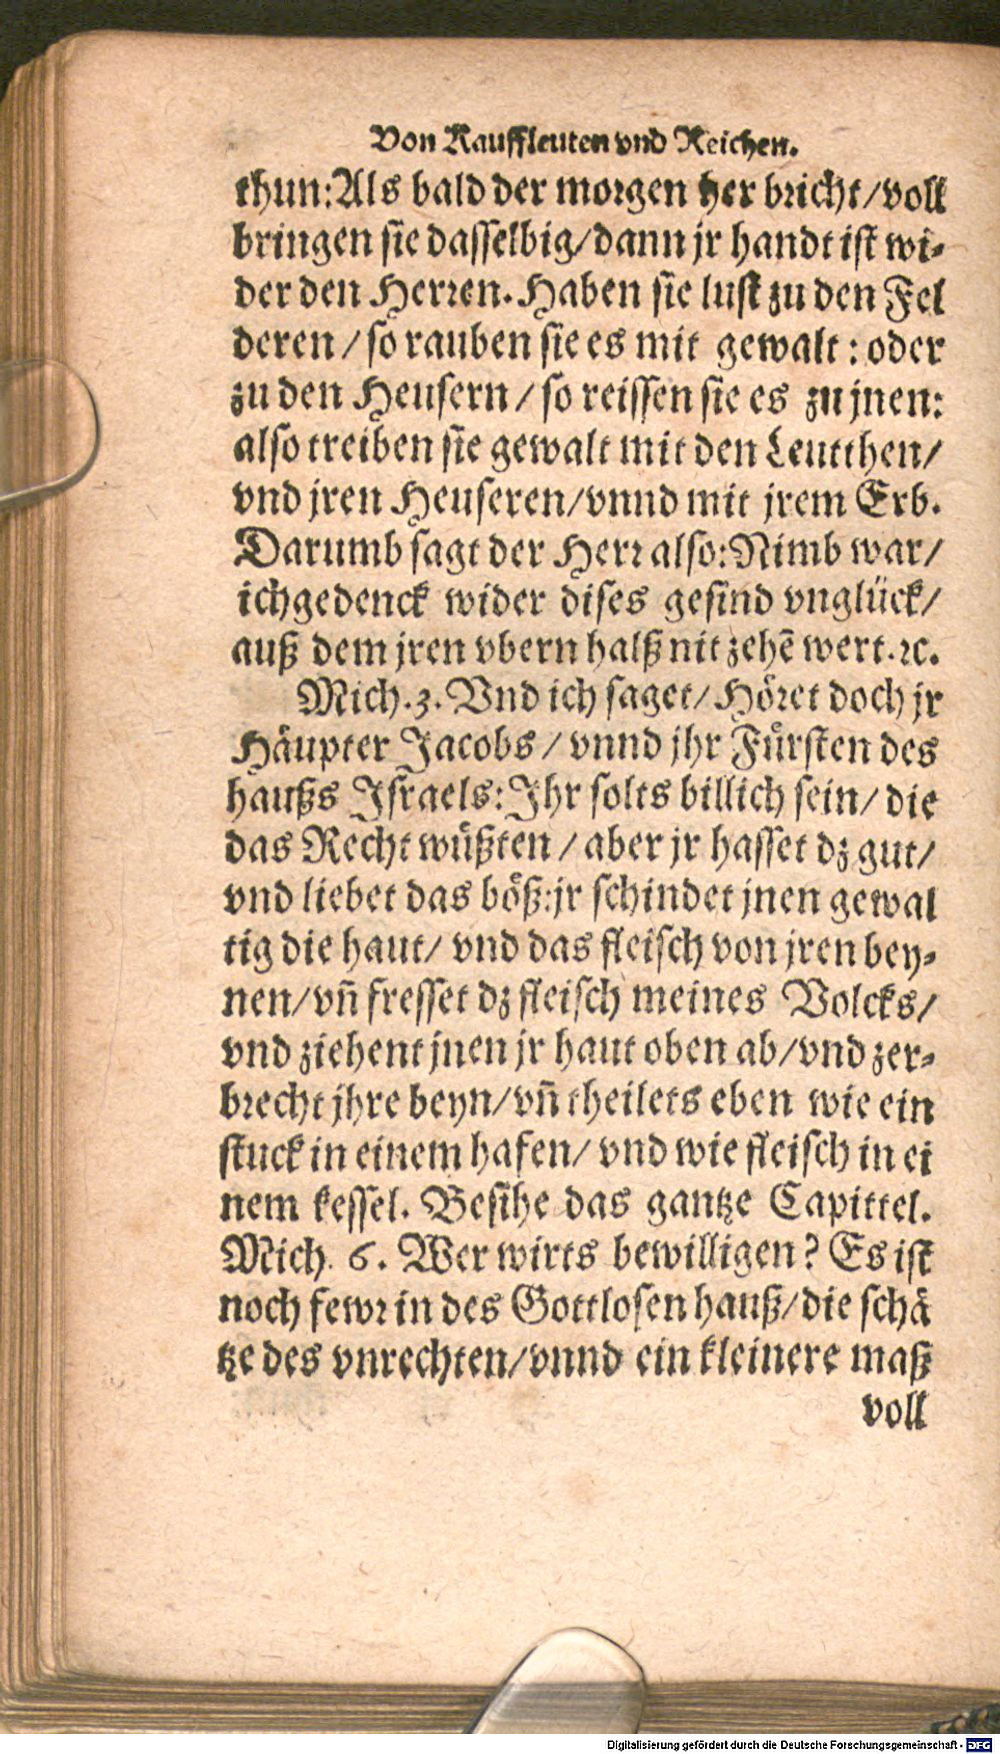 Von Kauffleuten vnd Reichen.
thun: Als bald der morgen her bricht/voll
bringen sie dasselbig/dann jr handt ist wi-
der den Herren. Haben sie lust zu den Fel
deren/so rauben sie es mit gewalt: oder
zu den Heusern/so reissen sie es zu jnen:
also treiben sie gewalt mit den Leutthen/
vnd jren Heuseren/vnnd mit jrem Erb.
Darumb sagt der Herr also: Nimb war/
ich gedenck wider dises gesind vnglück/
auß dem jren vbern halß nit zehē wert.ꝛc.
Mich.3. Vnd ich saget/ Höret doch jr
Häupter Jacobs/vnnd jhr Fürsten des
haußs Israels: Ihr solts billich sein/die
das Recht wüßten/aber jr hasset dz gut/
vnd liebet das böß: jr schindet jnen gewal
tig die haut/ vnd das fleisch von jren bey-
nen/vñ fresset dz fleisch meines Volcks/
vnd ziehent jnen jr haut oben ab/vnd zer-
brecht jhre beyn/vñ theilets eben wie ein
stuck in einem hafen/vnd wie fleisch in ei
nem kessel. Besihe das gantze Capittel.
Mich. 6. Wer wirts bewilligen? Es ist
noch fewr in des Gottlosen hauß/die schä
tze des vnrechten/vnnd ein kleinere maß
voll
Digitalisierung gefördert durch die Deutsche Forschungsgemeinschaft - DFG